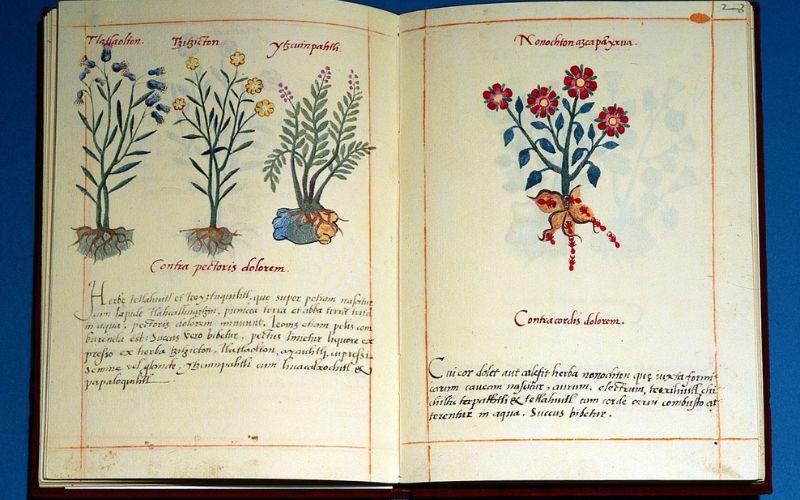 Tlatlaolton. Tzitzicton. Ytzcuinpahtli.
Contra pectoris dolorem.
Herbę tetlahuitl et teoyztaquiliitl, quę super petram nascitur
cum lapide punicea terra et alba terra trita
in aqua, pectoris dolorem minuunt. leonis etiam pelis com
burenda est. Succus vero bibetur, pectus linietur liquore ex
presso ex herba tzitzicton, tlatlaolton, ayauhtli, cupressi
semine vel glande, ytzcuinpahtli cum huacalxochitl &
papaloquilitl
28
Nonochton azcapayxxua.
Contra cordis dolorem.
Cui cor dolet aut calescit herba nonochton quę iuxta formi
carum caveam nascitur, aurum, electrum, teoxihuitl, chi
chiltic tapachtli & tetlahuitl cum corde cervi combusto at
terentur in aqua. Succus bibetur.